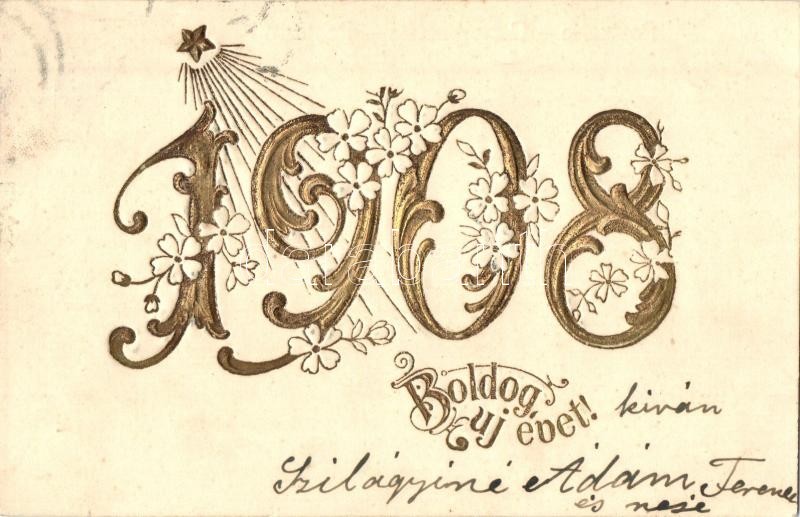 1908
Boldog
uj évet! kiván
Szilágyiné Ádám Ferenc
és neje